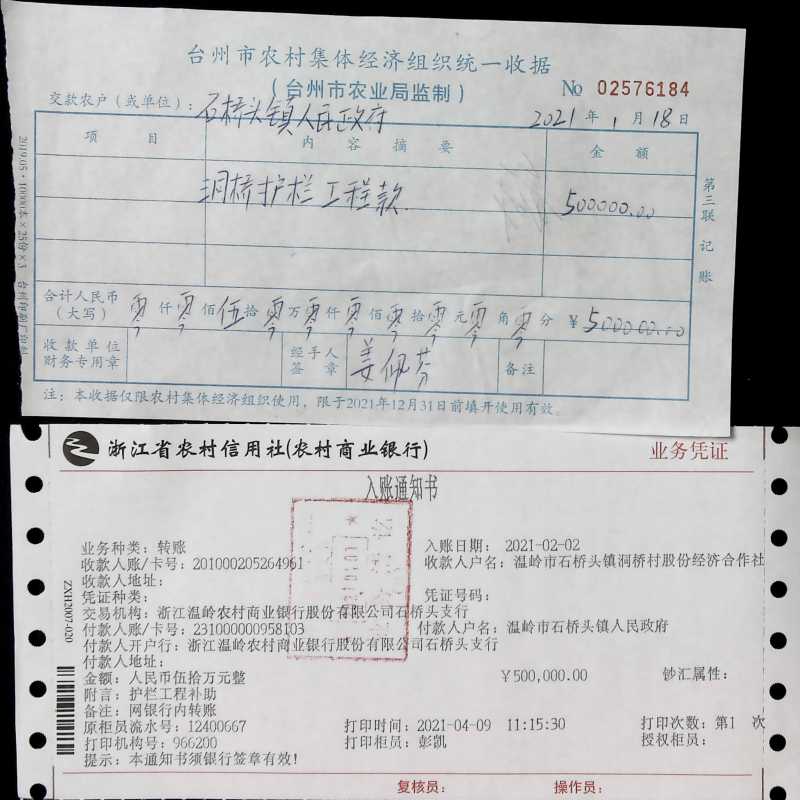 台州市农村集体经济组织统一收据
(台州市农业局监制)
№ 02576184
交款农户(或单位): 石桥头镇人民政府
2021年1月18日
项目 内容摘要 金额
洞桥护栏工程款 500000.00
第三联 记账
合计人民币(大写) 零仟零佰伍拾零万零仟零佰零拾零元零角零分 ¥500000.00
收款单位财务专用章 经手人签章 姜佩芬 备注
注:本收据仅限农村集体经济组织使用,限于2021年12月31日前填开使用有效。
浙江省农村信用社(农村商业银行) 业务凭证
入账通知书
业务种类:转账 入账日期: 2021-02-02
收款人账/卡号:201000205264961 收款人户名:温岭市石桥头镇洞桥村股份经济合作社
收款人地址:
凭证种类: 凭证号码:
交易机构:浙江温岭农村商业银行股份有限公司石桥头支行
付款人账/卡号:231000000958103 付款人户名:温岭市石桥头镇人民政府
付款人开户行:浙江温岭农村商业银行股份有限公司石桥头支行
付款人地址:
金额:人民币伍拾万元整 ¥500,000.00 钞汇属性:
附言:护栏工程补助
备注:网银行内转账
原柜员流水号:12400667 打印时间:2021-04-09 11:15:30 打印次数:第1 次
打印机构号:966200 打印柜员:彭凯 授权柜员:
提示:本通知书须银行签章有效!
复核员: 操作员:
ZXH2007-020